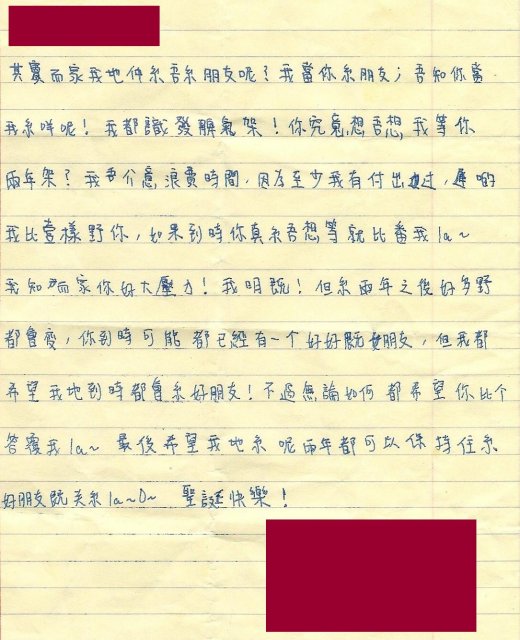 其實而家我地仲系吾系朋友呢？我當你系朋友；吾知你當
我系咩呢！我都識發脾氣架！你究竟想吾想我等你
兩年架？我吾介意浪費時間，因為至少我有付出過，
我比壹樣野你，如果到時你真系吾想等就比番我la~
我知而家你好大壓力！我明既！但系兩年之後好多野
都會變，你到時可能都已經有一个好好既女朋友，但我都
希望我地到時都會系好朋友！不過無論如何都希望你比个
答覆我la~ 最後希望我地系呢兩年都可以保持住系
好朋友既关系la~O~ 聖誕快樂！